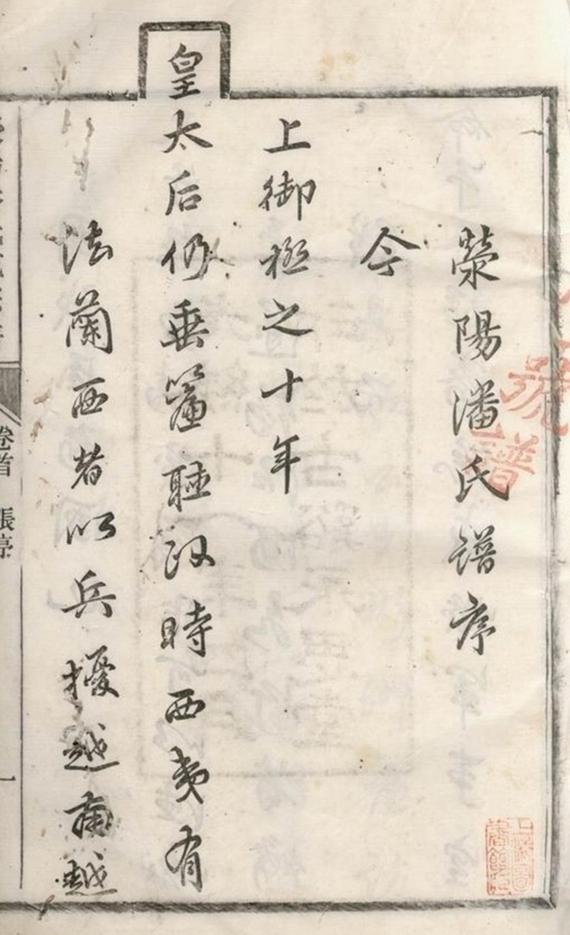 滎陽潘氏譜序
今
上御極之十年
皇太后仍垂簾聽政時西夷有
法蘭西者以兵擾越南越
卷首 張序
一